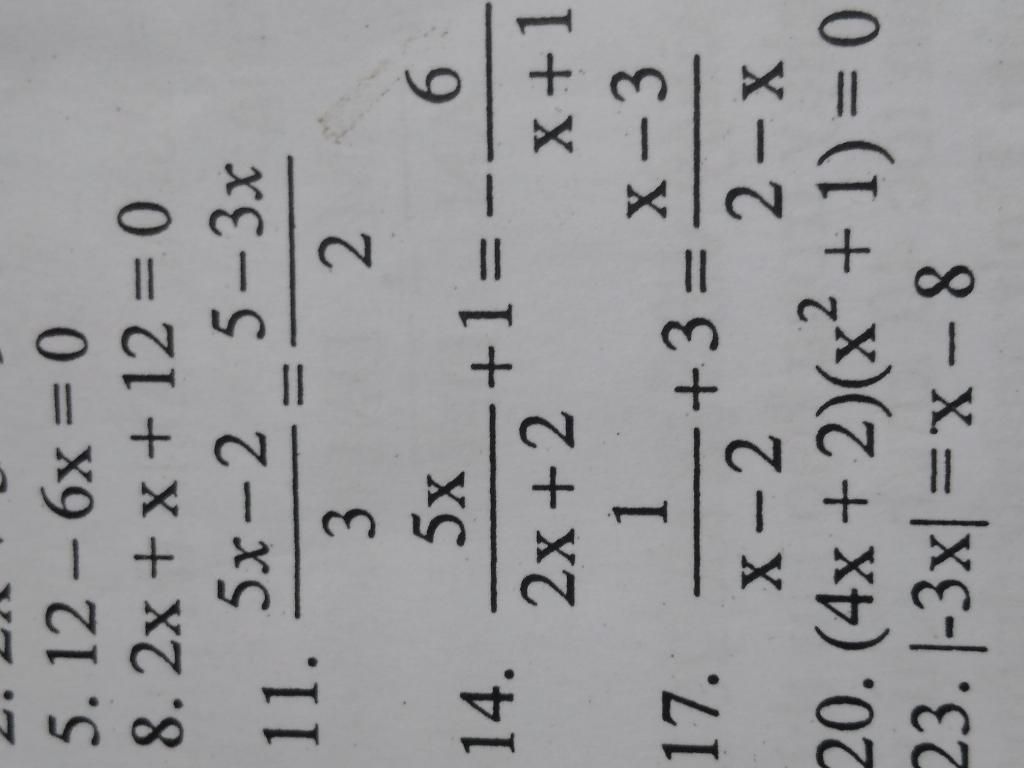 5. 12 – 6x = 0
8. 2x + x + 12 = 0
11. (5x – 2)/3 = (5 – 3x)/2
14. 5x/(2x + 2) + 1 = - 6/(x + 1)
17. 1/(x – 2) + 3 = (x – 3)/(2 – x)
20. (4x + 2)(x² + 1) = 0
23. |-3x| = x – 8